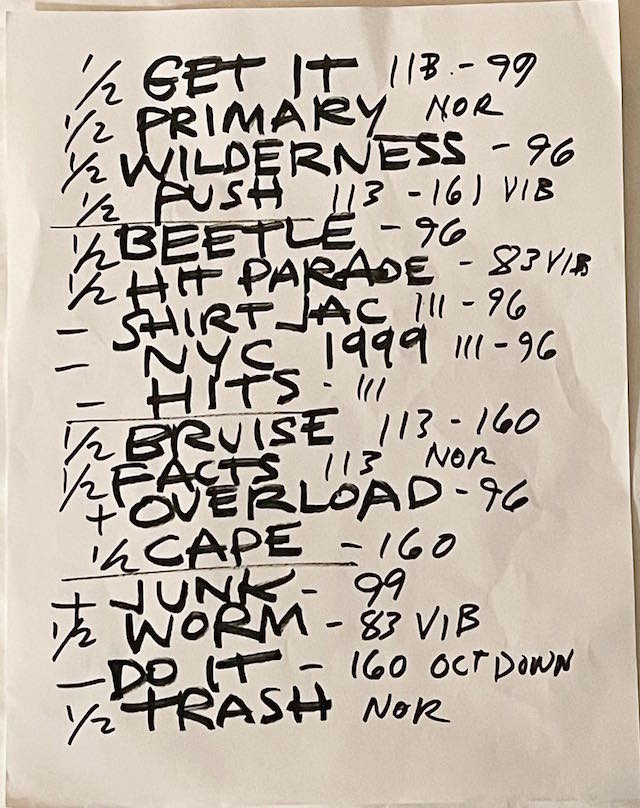 1/2 GET IT 11B - 99
1/2 PRIMARY NOR
1/2 WILDERNESS - 96
1/2 PUSH 113 - 161 VIB
1/2 BEETLE - 96
1/2 HIT PARADE - 83 VIB
- SHIRT JAC 111 - 96
- NYC 1999 111 - 96
- HITS - 111
1/2 BRUISE 113 - 160
1/2 FACTS 113 NOR
+ OVERLOAD - 96
1/2 CAPE - 160
+ JUNK - 99
1/2 WORM - 83 VIB
- DO IT - 160 OCT DOWN
1/2 TRASH NOR